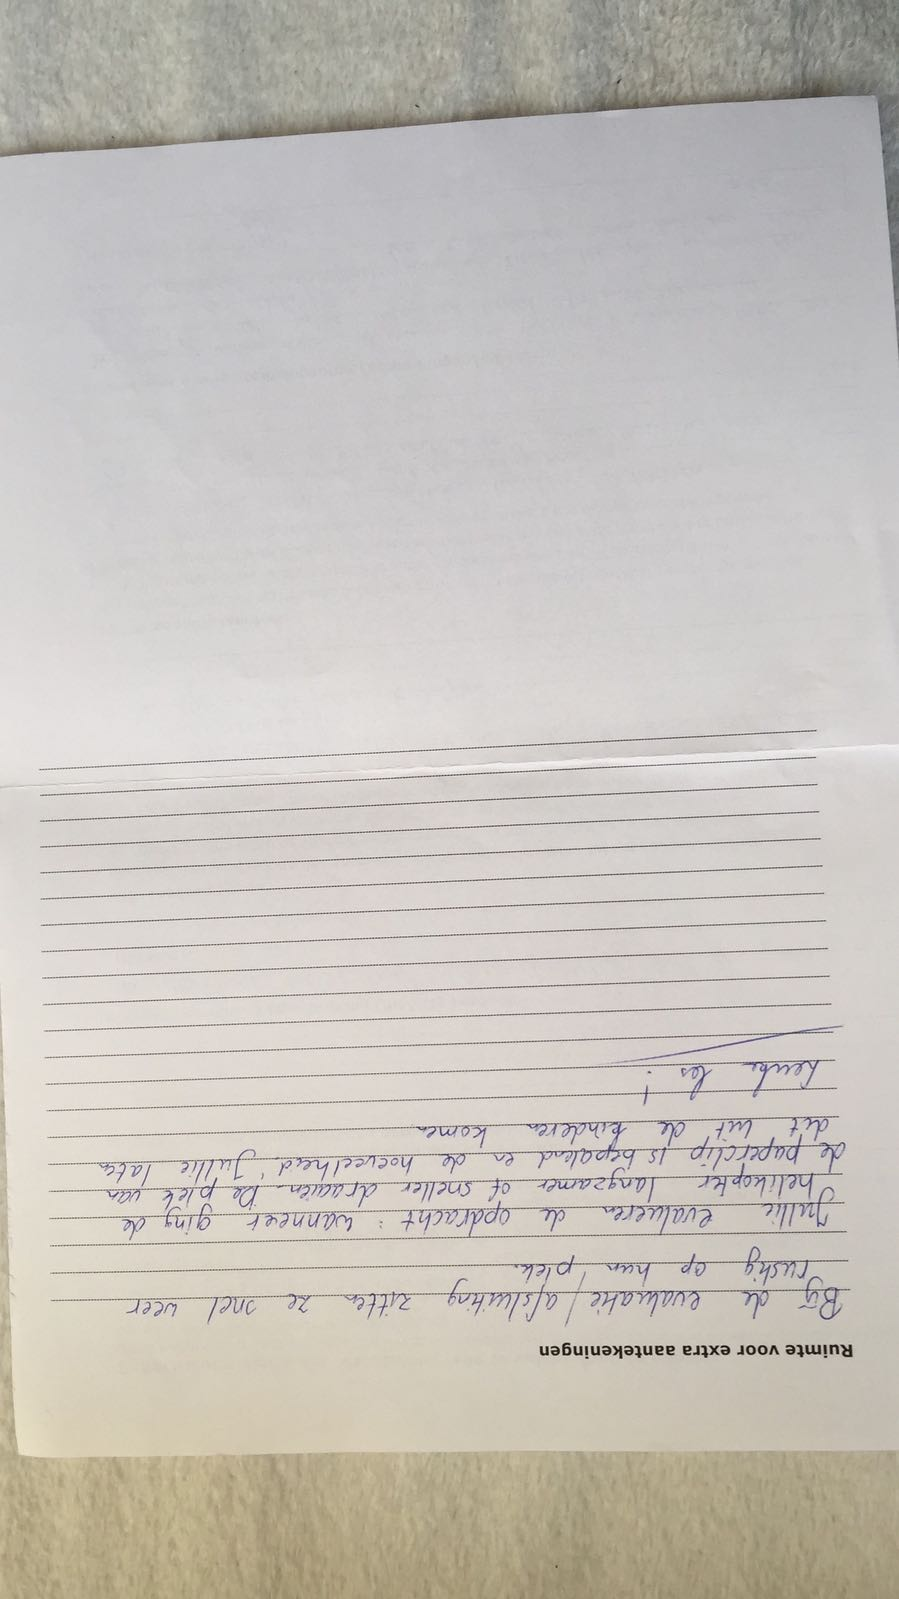 Ruimte voor extra aantekeningen
Bij de evaluatie/afsluiting zitten ze snel weer
rustig op hun plek.
Jullie evalueren de opdracht: wanneer ging de
helikopter langzamer of sneller draaien. De plek van
de paperclip is bepalend en de hoeveelheid. Jullie laten
dit uit de kinderen komen
Leuke les!